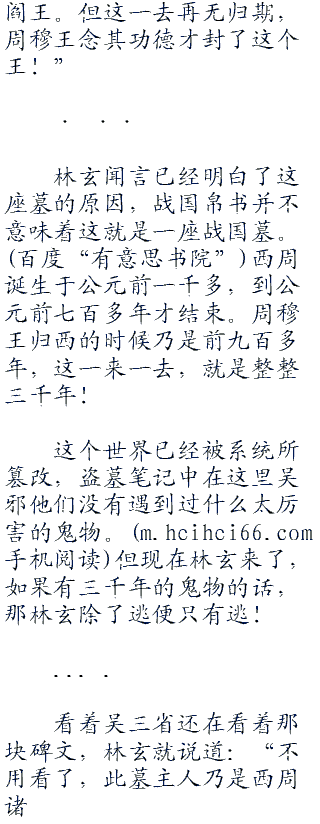 阎王。但这一去再无归期，
周穆王念其功德才封了这个
王！”
. . .
林玄闻言已经明白了这
座墓的原因，战国帛书并不
意味着这就是一座战国墓。
(百度“有意思书院”)西周
诞生于公元前一千多，到公
元前七百多年才结束。周穆
王归西的时候乃是前九百多
年，这一来一去，就是整整
三千年！
这个世界已经被系统所
篡改，盗墓笔记中在这里吴
邪他们没有遇到过什么太厉
害的鬼物。(m.hcihci66.com
手机阅读)但现在林玄来了，
如果有三千年的鬼物的话，
那林玄除了逃便只有逃！
... .
看着吴三省还在看着那
块碑文，林玄就说道：“不
用看了，此墓主人乃是西周
诸